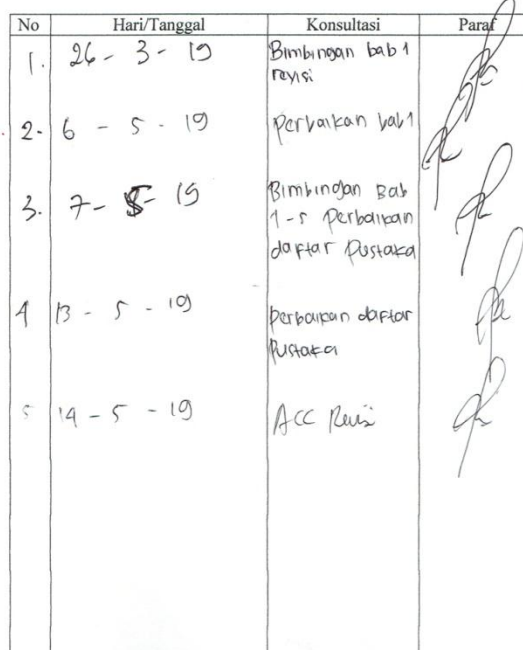 No Hari/Tanggal Konsultasi Paraf
1. 26 - 3 - 19 Bimbingan bab 1
revisi
2. 6 - 5 - 19 Perbaikan bab 1
3. 7 - 5 - 19 Bimbingan Bab
1-5 Perbaikan
daftar Pustaka
4 13 - 5 - 19 perbaikan daftar
Pustaka
5 14 - 5 - 19 Acc Revisi